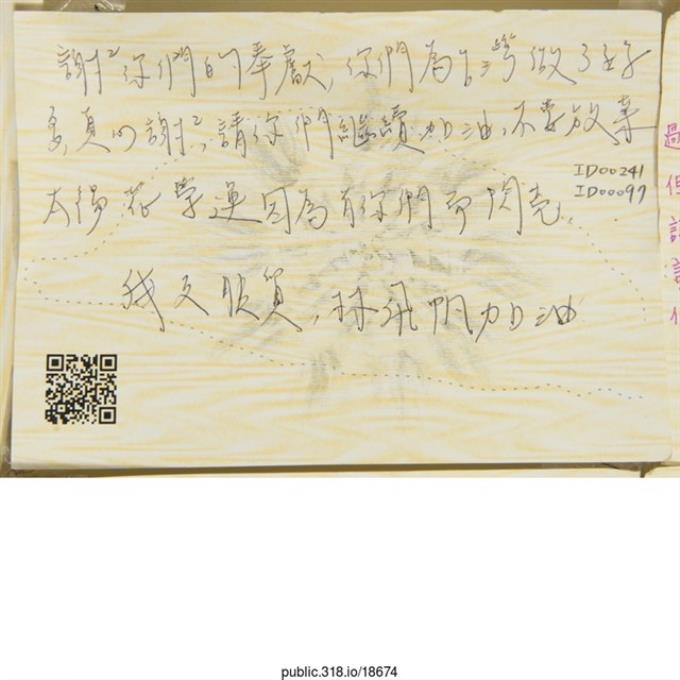 謝²你們的奉獻,你們為台灣做了好
多,真的謝²,請你們繼續加油,不要放棄
ID00241
ID00097
太陽花學運因為有你們而閃亮,
陳為廷,林飛帆加油
public.318.io/18674